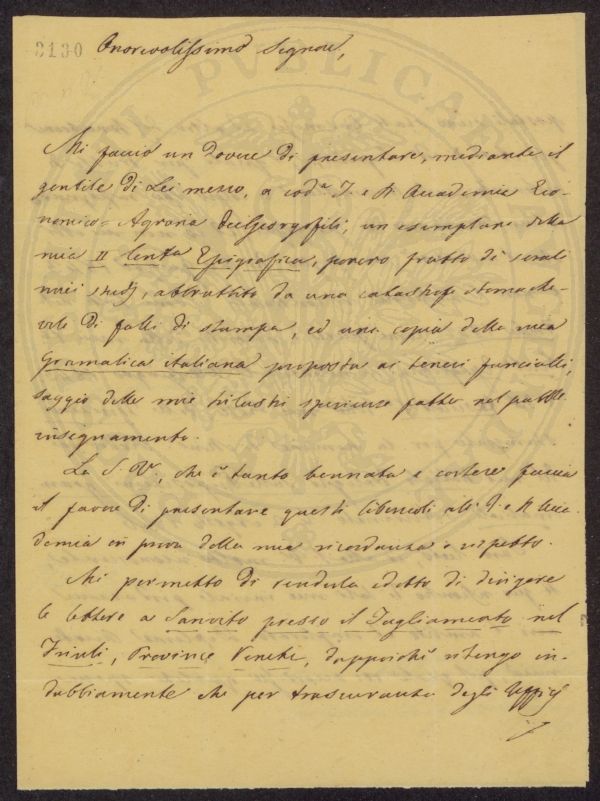 3130 Onorevolissimo Signore,
Mi faccio un dovere di presentare, mediante il
gentile di Lei mezzo, a cod.a I. e R. Accademia Eco-
nomico=Agraria de Georgofili, un esemplare della
mia II Epigrafica, povero frutto di serali
miei studj, abbruttito da una catastrofe stomache-
vole di falli di stampa, ed una copia della mia
Gramatica italiana proposta ai teneri fanciulli,
saggio delle mie trilustri sperienze fatte nel pubb.
insegnamento.
La S. V., che è tanto bennata e cortese faccia
il favore di presentare questi libercoli all' I. e R. Acca-
demia in prova della mia ricordanza e rispetto.
Mi permetto di renderla edotta di dirigere
le lettere a Sanvito presso il Tagliamento nel
Friuli, Province Venete, dappoichè ritengo in-
dubbiamente che per trascuranza degli Uffizj
PVBLICAE